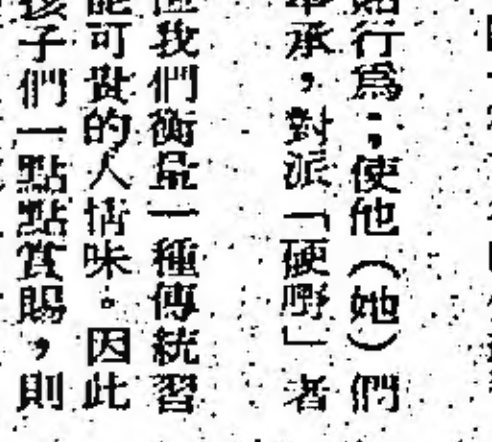 行為；使他（她）們
承，對派「硬嘢」者
我們衡量一種傳統習
能可貴的人情味。因此
孩子們一點點賞賜，則